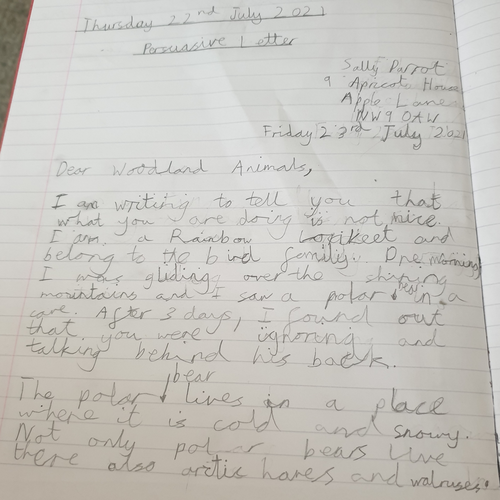 Thursday 22nd July 2021
Persuasive Letter
Sally Parrot
9 Apricote House
Apple Lane
NW9 0AW
Friday 23rd July 2021
Dear Woodland Animals,
I am writing to tell you that
what you are doing is not nice.
I am a Rainbow Lorikeet and
belong to the bird family. One morning
I was gliding over the shining
mountains and I saw a polar bear in a
cave. After 3 days, I found out
that you were ignoring and
talking behind his back.
The polar bear lives in a place
where it is cold and snowy.
Not only polar bears live
there also arctic hares and walruses.